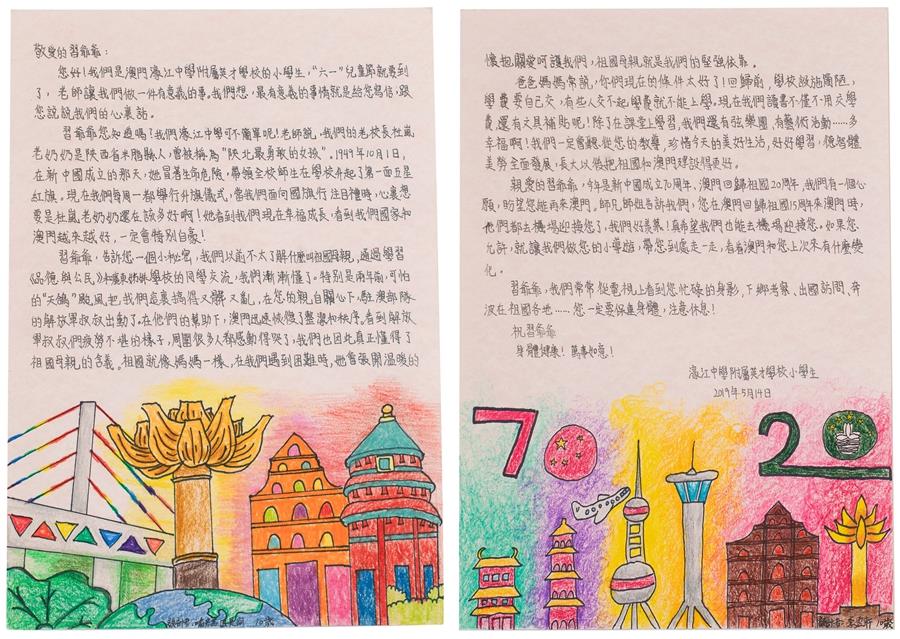 敬愛的習爺爺：
您好！我們是澳門濠江中學附屬英才學校的小學生，“六一”兒童節就要到
了，老師讓我們做一件有意義的事。我們想，最有意義的事情就是給您寫信，跟
您說說我們的心裏話。
習爺爺您知道嗎！我們濠江中學可不簡單呢！老師說，我們的老校長杜嵐
老奶奶是陝西省米脂縣人，曾被稱為“陝北最勇敢的女孩”。1949年10月1日，
在新中國成立的那天，她冒着生命危險，帶領全校師生在學校升起了第一面五星
紅旗。現在我們每周一都舉行升旗儀式，當我們面向國旗行注目禮時，心裏想
要是杜嵐老奶奶還在該多好啊！她看到我們現在幸福成長，看到我們國家和
澳門越來越好，一定會特別自豪！
習爺爺，告訴您一個小秘密，我們以前不太了解什麼叫祖國母親，通過學習
《品德與公民》和學校的同學交流，我們漸漸懂了。特別是兩年前，可怕
的“天鴿”颱風把我們這裏搞得又髒又亂，在您的親自關心下，駐澳部隊
的解放軍叔叔出動了。在他們的幫助下，澳門迅速恢復了整潔和秩序。看到解放
軍叔叔們疲勞不堪的樣子，周圍很多人都感動得哭了，我們也因此真正懂得了
祖國母親的含義。祖國就像媽媽一樣，在我們遇到困難時，她會張開溫暖的
10歲
懷抱關愛呵護我們，祖國母親就是我們的堅強依靠。
爸爸媽媽常說，你們現在的條件太好了！回歸前，學校設施簡陋，
學費要自己交，有些人交不起學費就不能上學。現在我們讀書不僅不用交學
費，還有文具補貼呢！除了在課堂上學習，我們還有弦樂團，有藝術活動……多
幸福啊！我們一定會聽從您的教導，珍惜今天的美好生活，好好學習，德智體
美勞全面發展，長大以後把祖國和澳門建設得更好。
親愛的習爺爺，今年是新中國成立70周年、澳門回歸祖國20周年，我們有一個心
願，盼望您能再來澳門。師兄師姐告訴我們，您在澳門回歸祖國15周年來澳門時，
他們都去機場迎接您了，我們好羨慕！真希望我們也能去機場迎接您。如果您
允許，就讓我們做您的小導遊，帶您到處走一走，看看澳門和您上次來有什麼變
化。
習爺爺，我們常常從電視上看到您忙碌的身影，下鄉考察、出國訪問、奔
波在祖國各地……您一定要保重身體，注意休息！
祝習爺爺
身體健康！萬事如意！
濠江中學附屬英才學校小學生
2019年5月14日
70
20
10歲